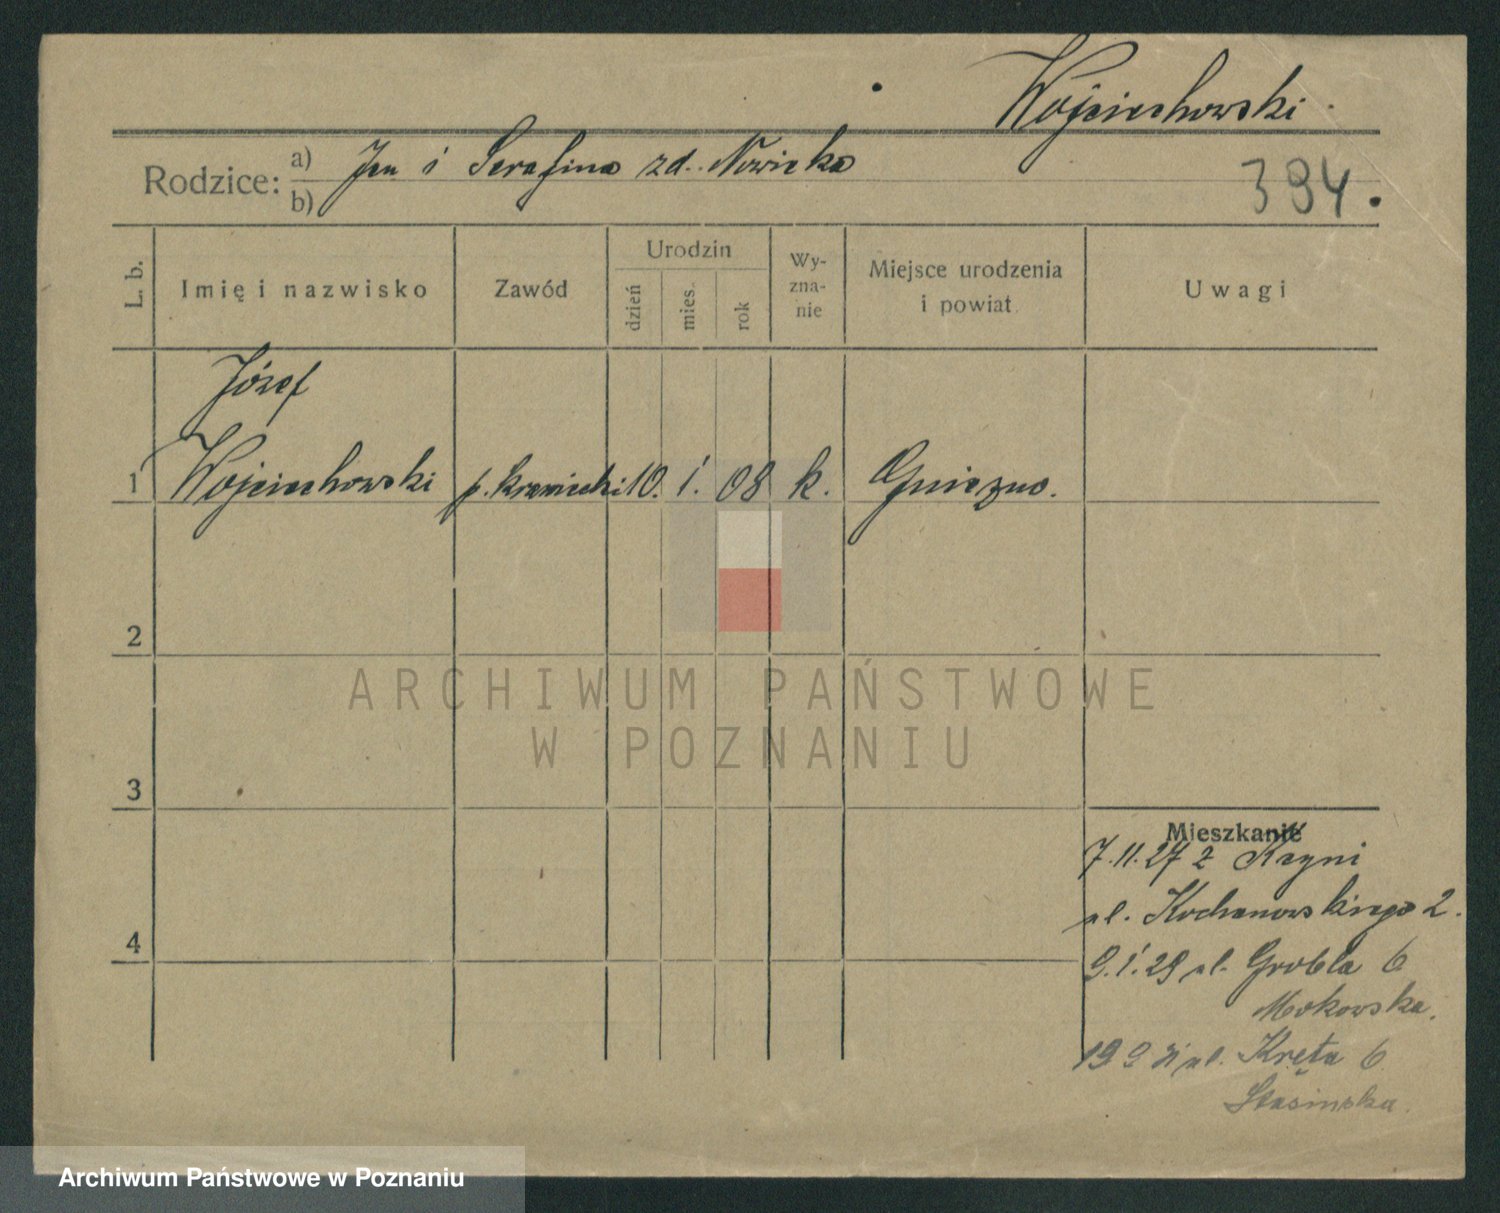 Wojciechowski.
Rodzice: a) Jan i Serafina zd. Nowicka
b)
394.
L. b.
Imię i nazwisko
Zawód
Urodzin
dzień
mies.
rok
Wy-
zna-
nie
Miejsce urodzenia
i powiat
Uwagi
Józef
1 Wojciechowski p. krawiecki 10. I. 08 k. Gniezno.
2
ARCHIWUM PAŃSTWOWE
W POZNANIU
3
Mieszkanie
7.11.27 z Kcyni
ul. Kochanowskiego 2.
9.1.29 ul. Grobla 6
4
Mokowska.
19 9 31 ul. Kręta 6
Stasinska.
Archiwum Państwowe w Poznaniu